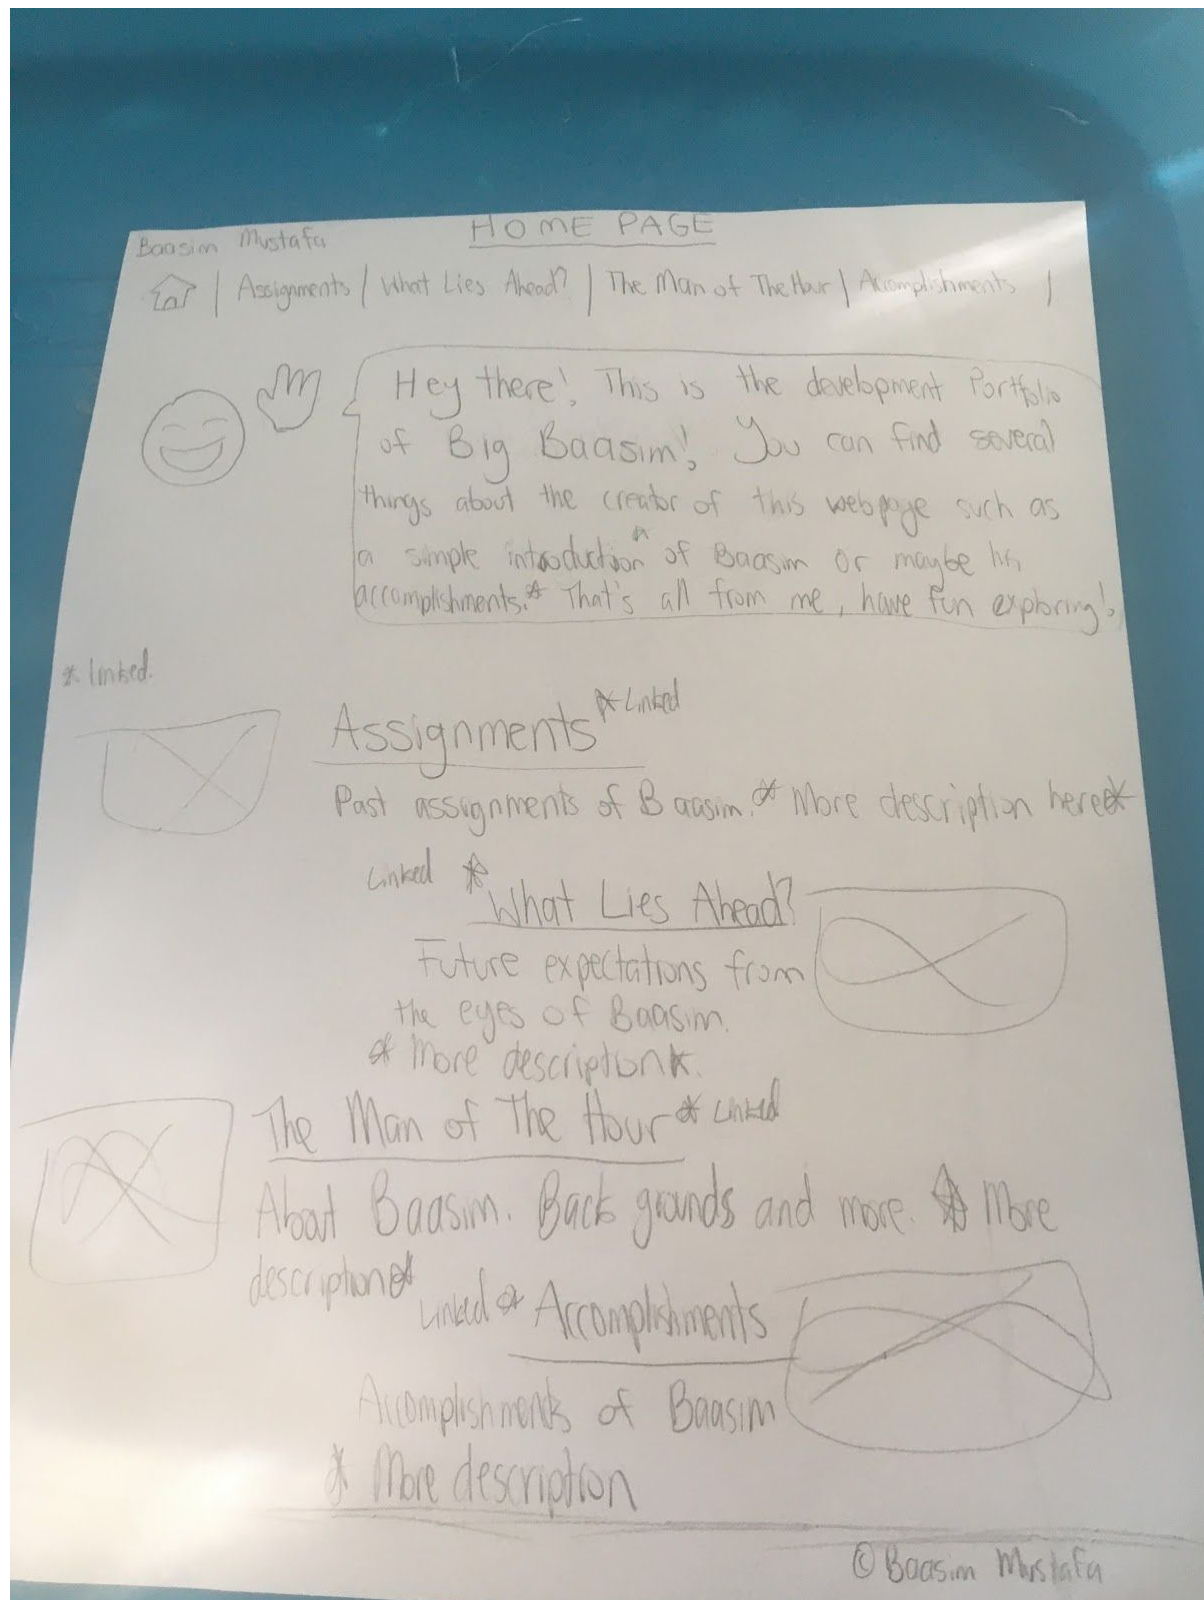 Baasim Mustafa
HOME PAGE
| Assignments | What Lies Ahead? | The Man of The Hour | Accomplishments |
Hey there! This is the development Portfolio
of Big Baasim! You can find several
things about the creator of this webpage such as
a simple introduction* of Baasim or maybe his
accomplishments.* That's all from me, have fun exploring!
* linked.
Assignments * Linked
Past assignments of Baasim. * More description here *
Linked * What Lies Ahead?
Future expectations from
the eyes of Baasim.
* More description *.
The Man of The Hour * Linked
About Baasim. Back grounds and more. * More
description *
Linked * Accomplishments
Accomplishments of Baasim
* More description
© Baasim Mustafa